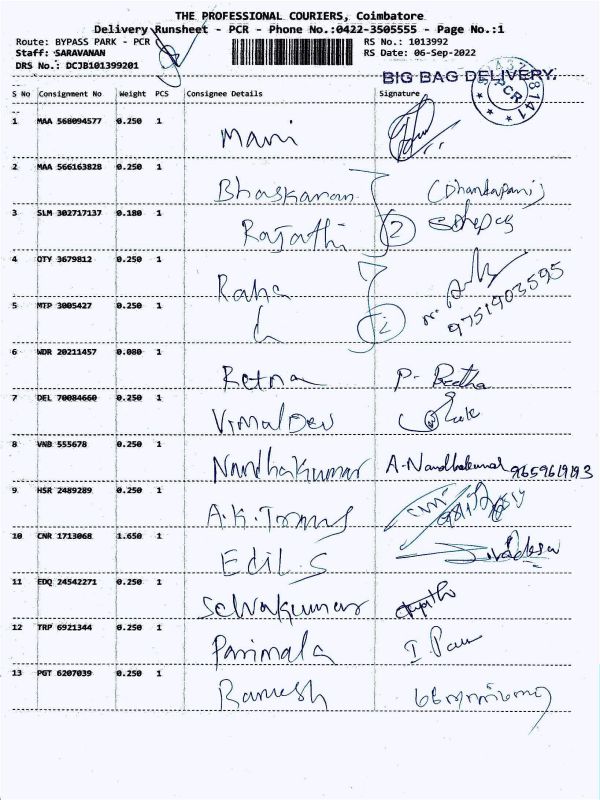 THE PROFESSIONAL COURIERS, Coimbatore
Delivery Runsheet - PCR - Phone No.:0422-3505555 - Page No.:1
Route: BYPASS PARK - PCR RS No.: 1013992
Staff: SARAVANAN RS Date: 06-Sep-2022
DRS No.: DCJB101399201
BIG BAG DELIVERY.
PCR
S No Consignment No Weight PCS Consignee Details Signature
1 MAA 568094577 0.250 1 Mani
2 MAA 566163828 0.250 1 Bhaskaran (Dhandapani)
3 SLM 302717137 0.180 1 Rajathi 2
4 OTY 3679812 0.250 1 Raha
5 MTP 3005427 0.250 1 2 9751903595
6 WDR 20211457 0.080 1 Retna P- Beetha
7 DEL 70084660 0.250 1 Vimal Dev
8 VNB 555678 0.250 1 Nandhakumar A-Nandhakumar 9659619193
9 HSR 2489289 0.250 1 A.K.Toms
10 CNR 1713068 1.650 1 Edil.S
11 EDQ 24542271 0.250 1 Selvakumar
12 TRP 6921344 0.250 1 Parimala
13 PGT 6207039 0.250 1 Ramesh